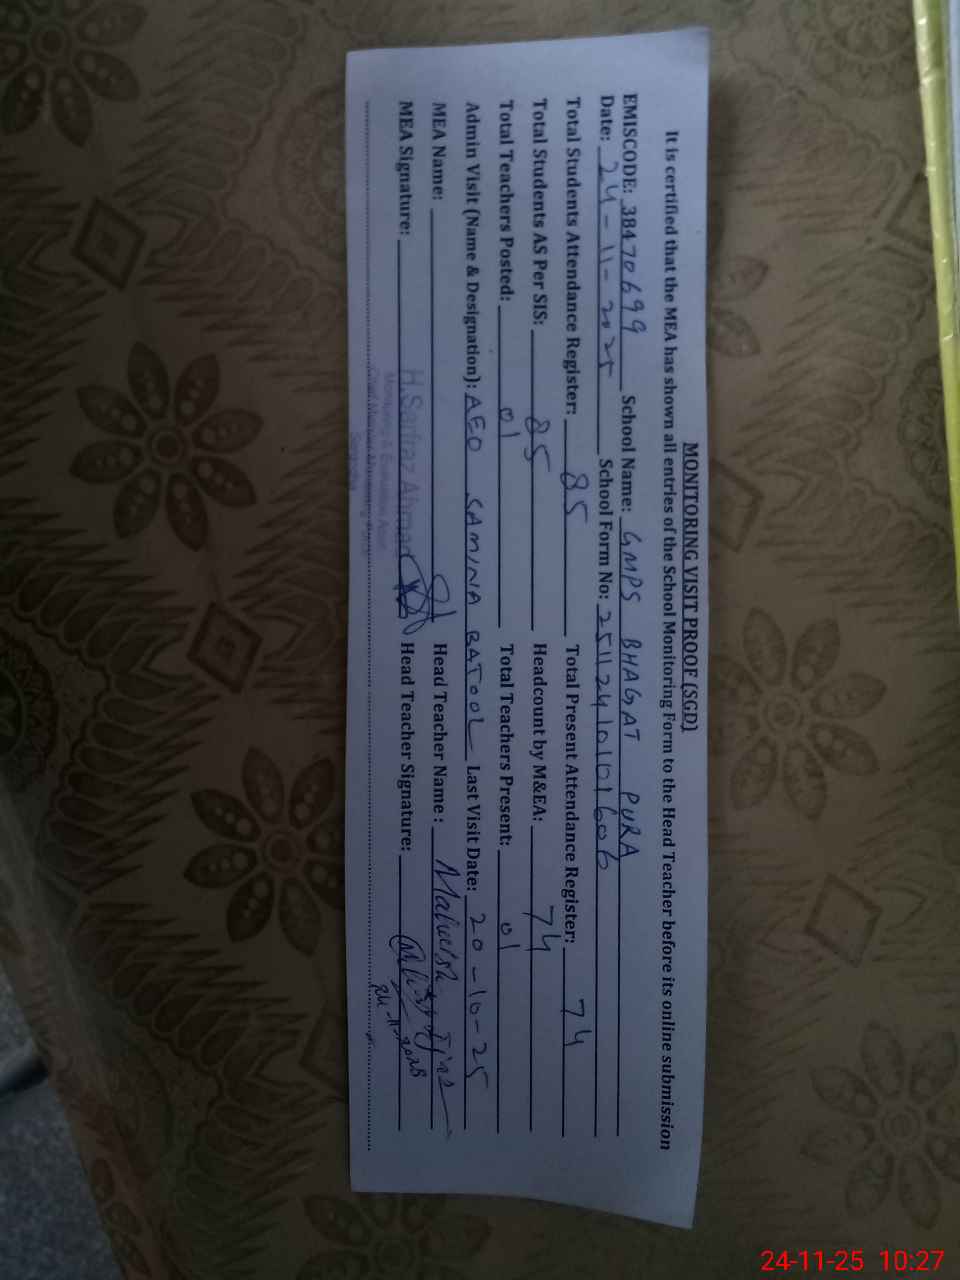 MONITORING VISIT PROOF (SGD)
It is certified that the MEA has shown all entries of the School Monitoring Form to the Head Teacher before its online submission
EMISCODE: 38470699 School Name: GMPS BHAGAT PURA
Date: 24-11-2025 School Form No: 25112410101606
Total Students Attendance Register: 85 Total Present Attendance Register: 74
Total Students AS Per SIS: 85 Headcount by M&EA: 74
Total Teachers Posted: 01 Total Teachers Present: 01
Admin Visit (Name & Designation): AEO SAMINA BATOOL Last Visit Date: 20-10-25
MEA Name: Head Teacher Name :
MEA Signature: Head Teacher Signature:
H.Sarfraz Ahmad
24-11-2025
24-11-25 10:27